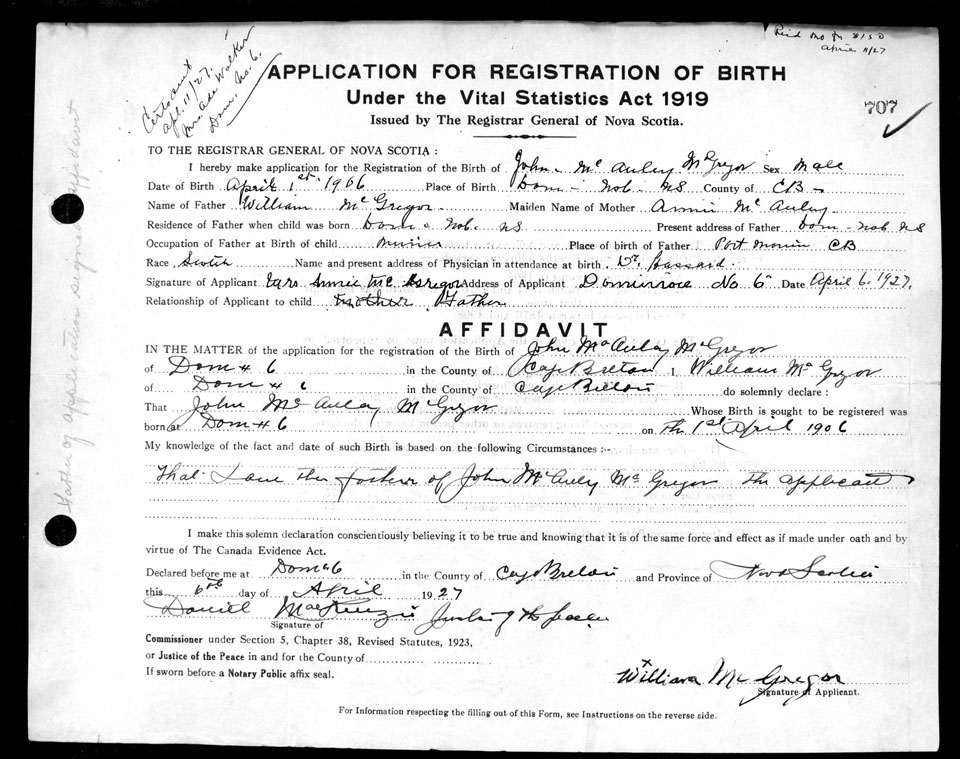 April 11/27
Cert sent
Apl. 11/27.
Dom. No. 6.
APPLICATION FOR REGISTRATION OF BIRTH
Under the Vital Statistics Act 1919
707
Issued by The Registrar General of Nova Scotia.
TO THE REGISTRAR GENERAL OF NOVA SCOTIA :
I hereby make application for the Registration of the Birth of John Mc Auley McGregor Sex Male
Date of Birth April 1st 1906 Place of Birth Dom - No6 - NS County of CB -
Name of Father William McGregor Maiden Name of Mother Annie McAuley
Residence of Father when child was born Dom - No6. NS Present address of Father Dom - No6 NS
Occupation of Father at Birth of child Place of birth of Father Port Morien CB
Race Scotch Name and present address of Physician in attendance at birth Dr.
Signature of Applicant Mrs Annie McGregor Address of Applicant Dominion No. 6 Date April 6. 1927.
Relationship of Applicant to child Mother Father
AFFIDAVIT
IN THE MATTER of the application for the registration of the Birth of John McAuley McGregor
of Dom # 6 in the County of Cape Breton I, William McGregor
of Dom # 6 in the County of Cape Breton do solemnly declare :
That John McAulay McGregor Whose Birth is sought to be registered was
born at Dom # 6 on the 1st April 1906
My knowledge of the fact and date of such Birth is based on the following Circumstances :-
That I am the father of John McAuley McGregor the applicant
I make this solemn declaration conscientiously believing it to be true and knowing that it is of the same force and effect as if made under oath and by
virtue of The Canada Evidence Act.
Declared before me at Dom # 6 in the County of Cape Breton and Province of Nova Scotia
this 6th day of April 1927
Daniel MacKenzie Justice of the peace
Signature of
Commissioner under Section 5, Chapter 38, Revised Statutes, 1923,
or Justice of the Peace in and for the County of
If sworn before a Notary Public affix seal.
William McGregor
Signature of Applicant.
For Information respecting the filling out of this Form, see Instructions on the reverse side.
Father of application signed affidavit